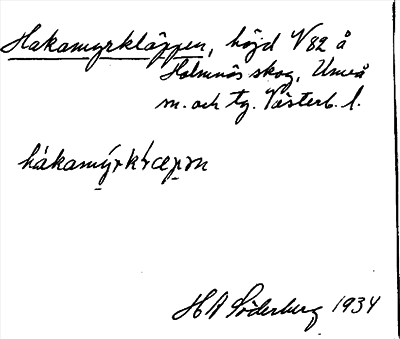 Hakamyrkläppen, höjd V 82 å
Holmnäs skog, Umeå
m. och tg. Västerb. l.
hákamýrkłæpən
H A Söderberg 1934